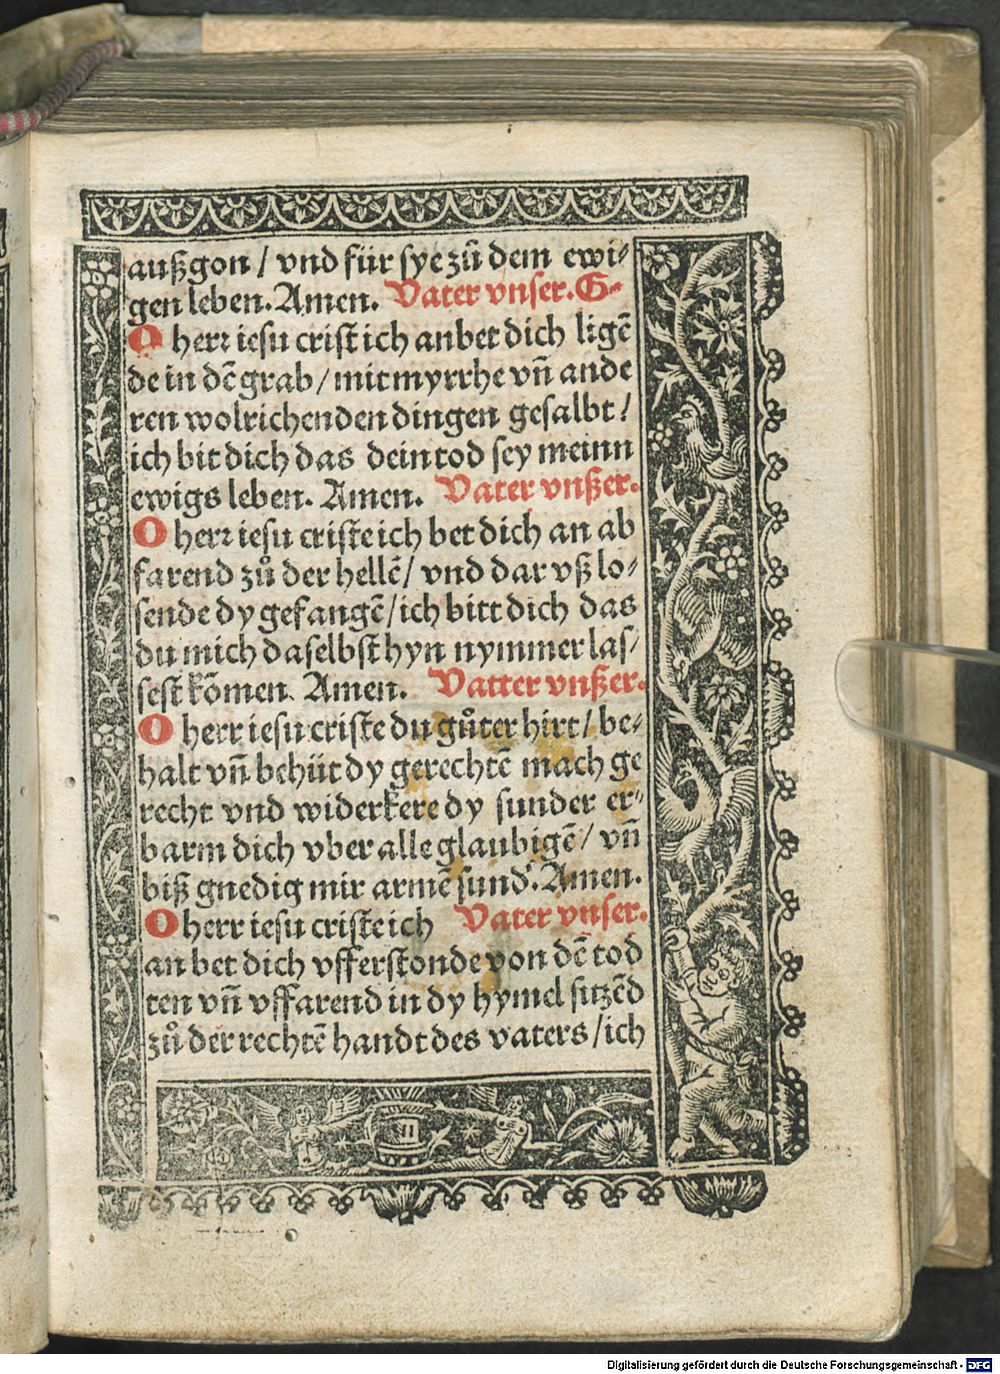 außgon / vnd für sye zů dem ewi⸗
gen leben. Amen. Vater vnser. G⸗
O herꝛ iesu crist ich anbet dich ligē
de in dē grab / mit myrrhe vñ ande
ren wolrichenden dingen gesalbt /
ich bit dich das dein tod sey meinn
ewigs leben. Amen. Vater vnßer.
O herꝛ iesu criste ich bet dich an ab
farend zů der hellē / vnd dar vß lo⸗
sende dy gefangē / ich bitt dich das
du mich daselbst hyn nymmer las⸗
sest kōmen. Amen. Vatter vnßer.
O herr iesu criste du gůter hirt / be⸗
halt vñ behüt dy gerechtē mach ge
recht vnd widerkere dy sunder er⸗
barm dich vber alle glaubigē / vñ
biß gnedig mir armē sund'. Amen.
O herr iesu criste ich Vater vnser.
an bet dich vfferstonde von dē tod
ten vñ vffarend in dy hymel sitzēd
zů der rechtē handt des vaters / ich
Digitalisierung gefördert durch die Deutsche Forschungsgemeinschaft - DFG